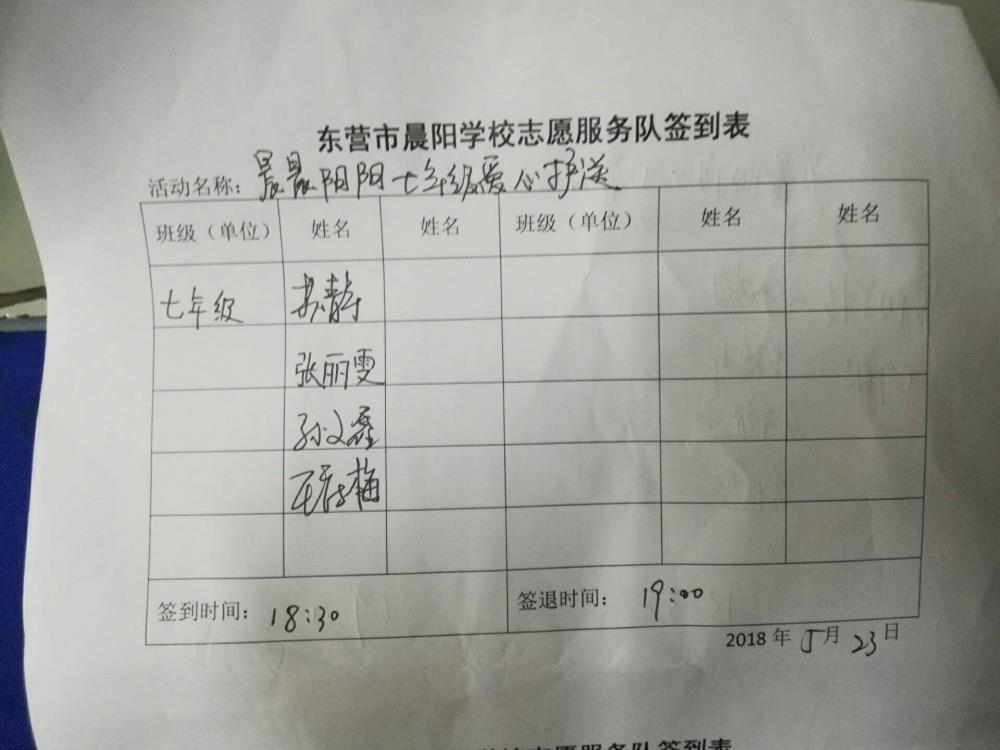 东营市晨阳学校志愿服务队签到表
活动名称：晨晨阳阳七年级爱心护送
班级（单位） 姓名 姓名 班级（单位） 姓名 姓名
七年级 苏静
张丽雯
孙文磊
签到时间：18:30 签退时间：19:00
2018年5月23日
志愿服务队签到表